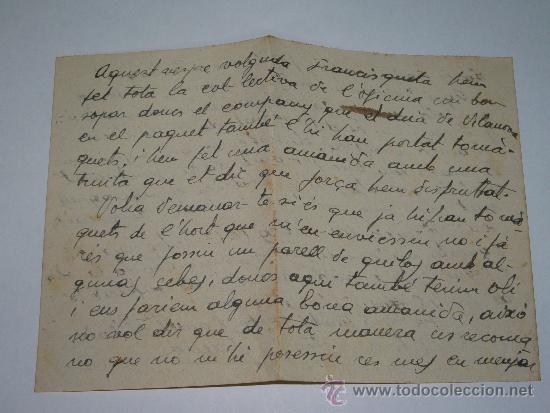 Aquest vespre volguda Francisqueta hem
fet tota la col·lectiva de l'oficina un bon
sopar doncs el company que et duia de Vilanova
en el paquet també l'hi han portat tomà-
quets, i hem fet una amanida amb una
truita que et dic que força hem disfrutat.
Volia demanar-te si és que ja hi han tomà
quets de l'hort que m'en enviessin no i fà
res que possin un parell de quilos amb al-
gunas sebes, doncs aquí també tenim oli
i ens fariem alguna bona amanida, aixó
no vol dir que de tota manera us recoma
no que no m'hi posessin res mes en menjar
todocoleccion
www.todocoleccion.net